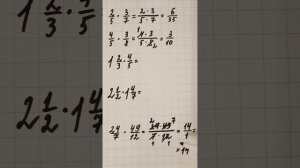 2/5 · 3/7 = 2 · 3/5 · 7 = 6/35
4/5 · 3/8 = 4 · 3/5 · 8 = 3/10
1 2/3 · 4/5 =
2 1/2 · 1 4/7 =
24/7 · 49/12 = 24 · 49/7 · 12 = 14/1 =
= 14